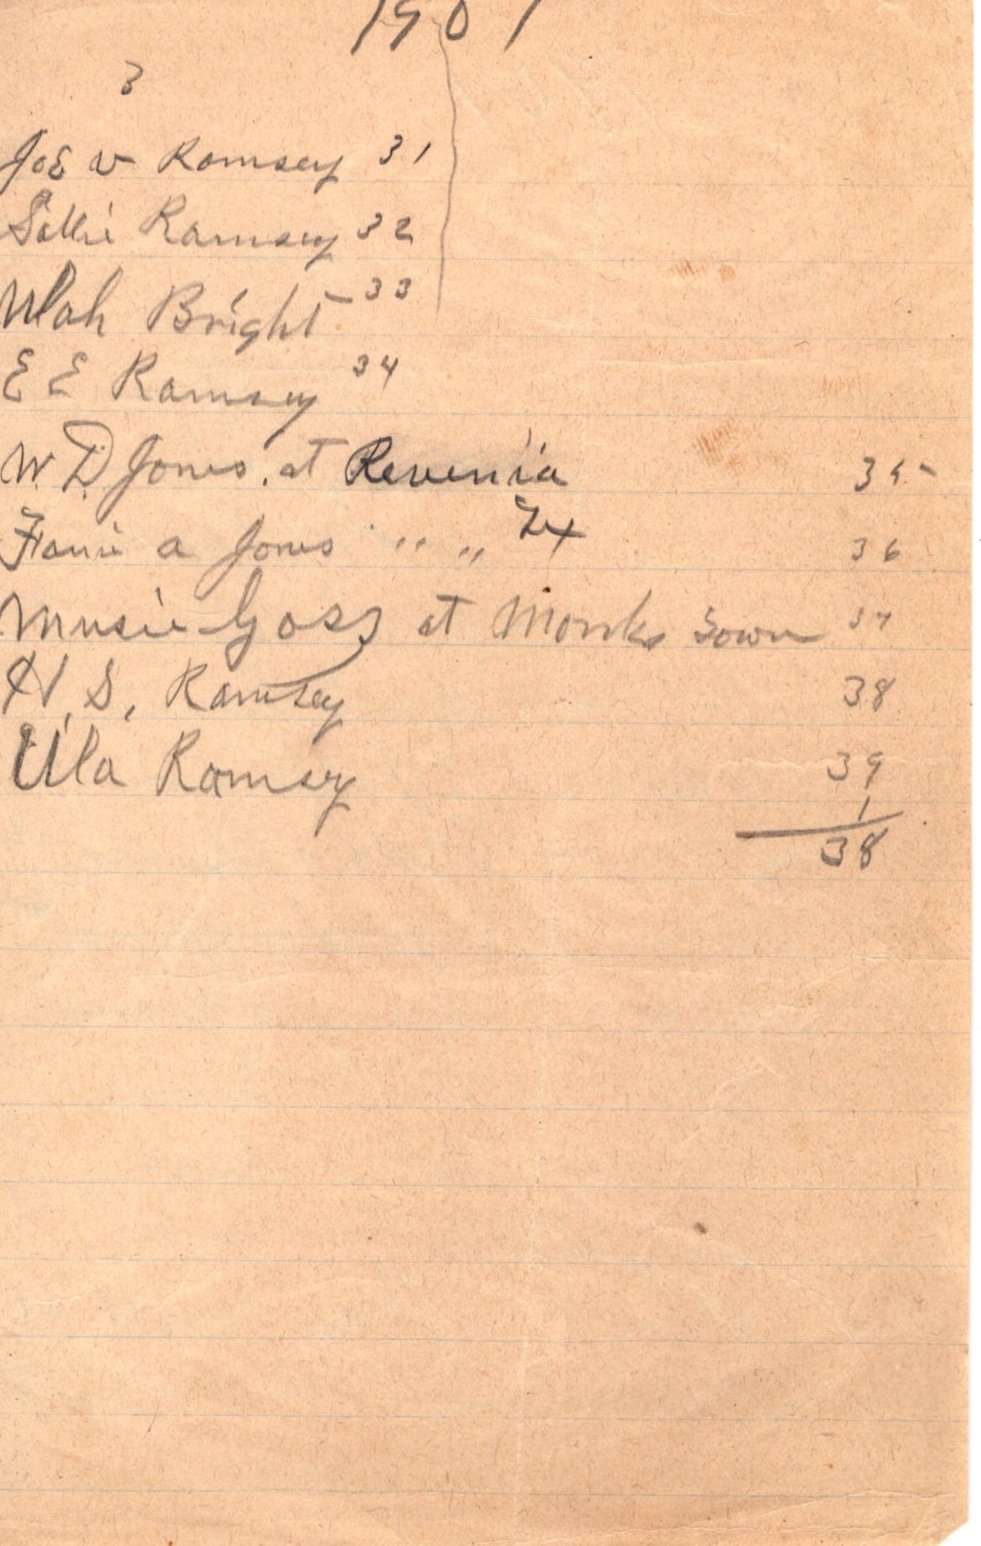 1907
3
Joe v Ramsey 31
Sallie Ramsey 32
Ulah Bright 33
E E Ramsey 34
W. D Jones. at Revenia 35
Fanie a Jones " " Tex 36
Musie Goss at Monks Town 37
H. S, Ramsey 38
Ula Ramsey 39
1
38